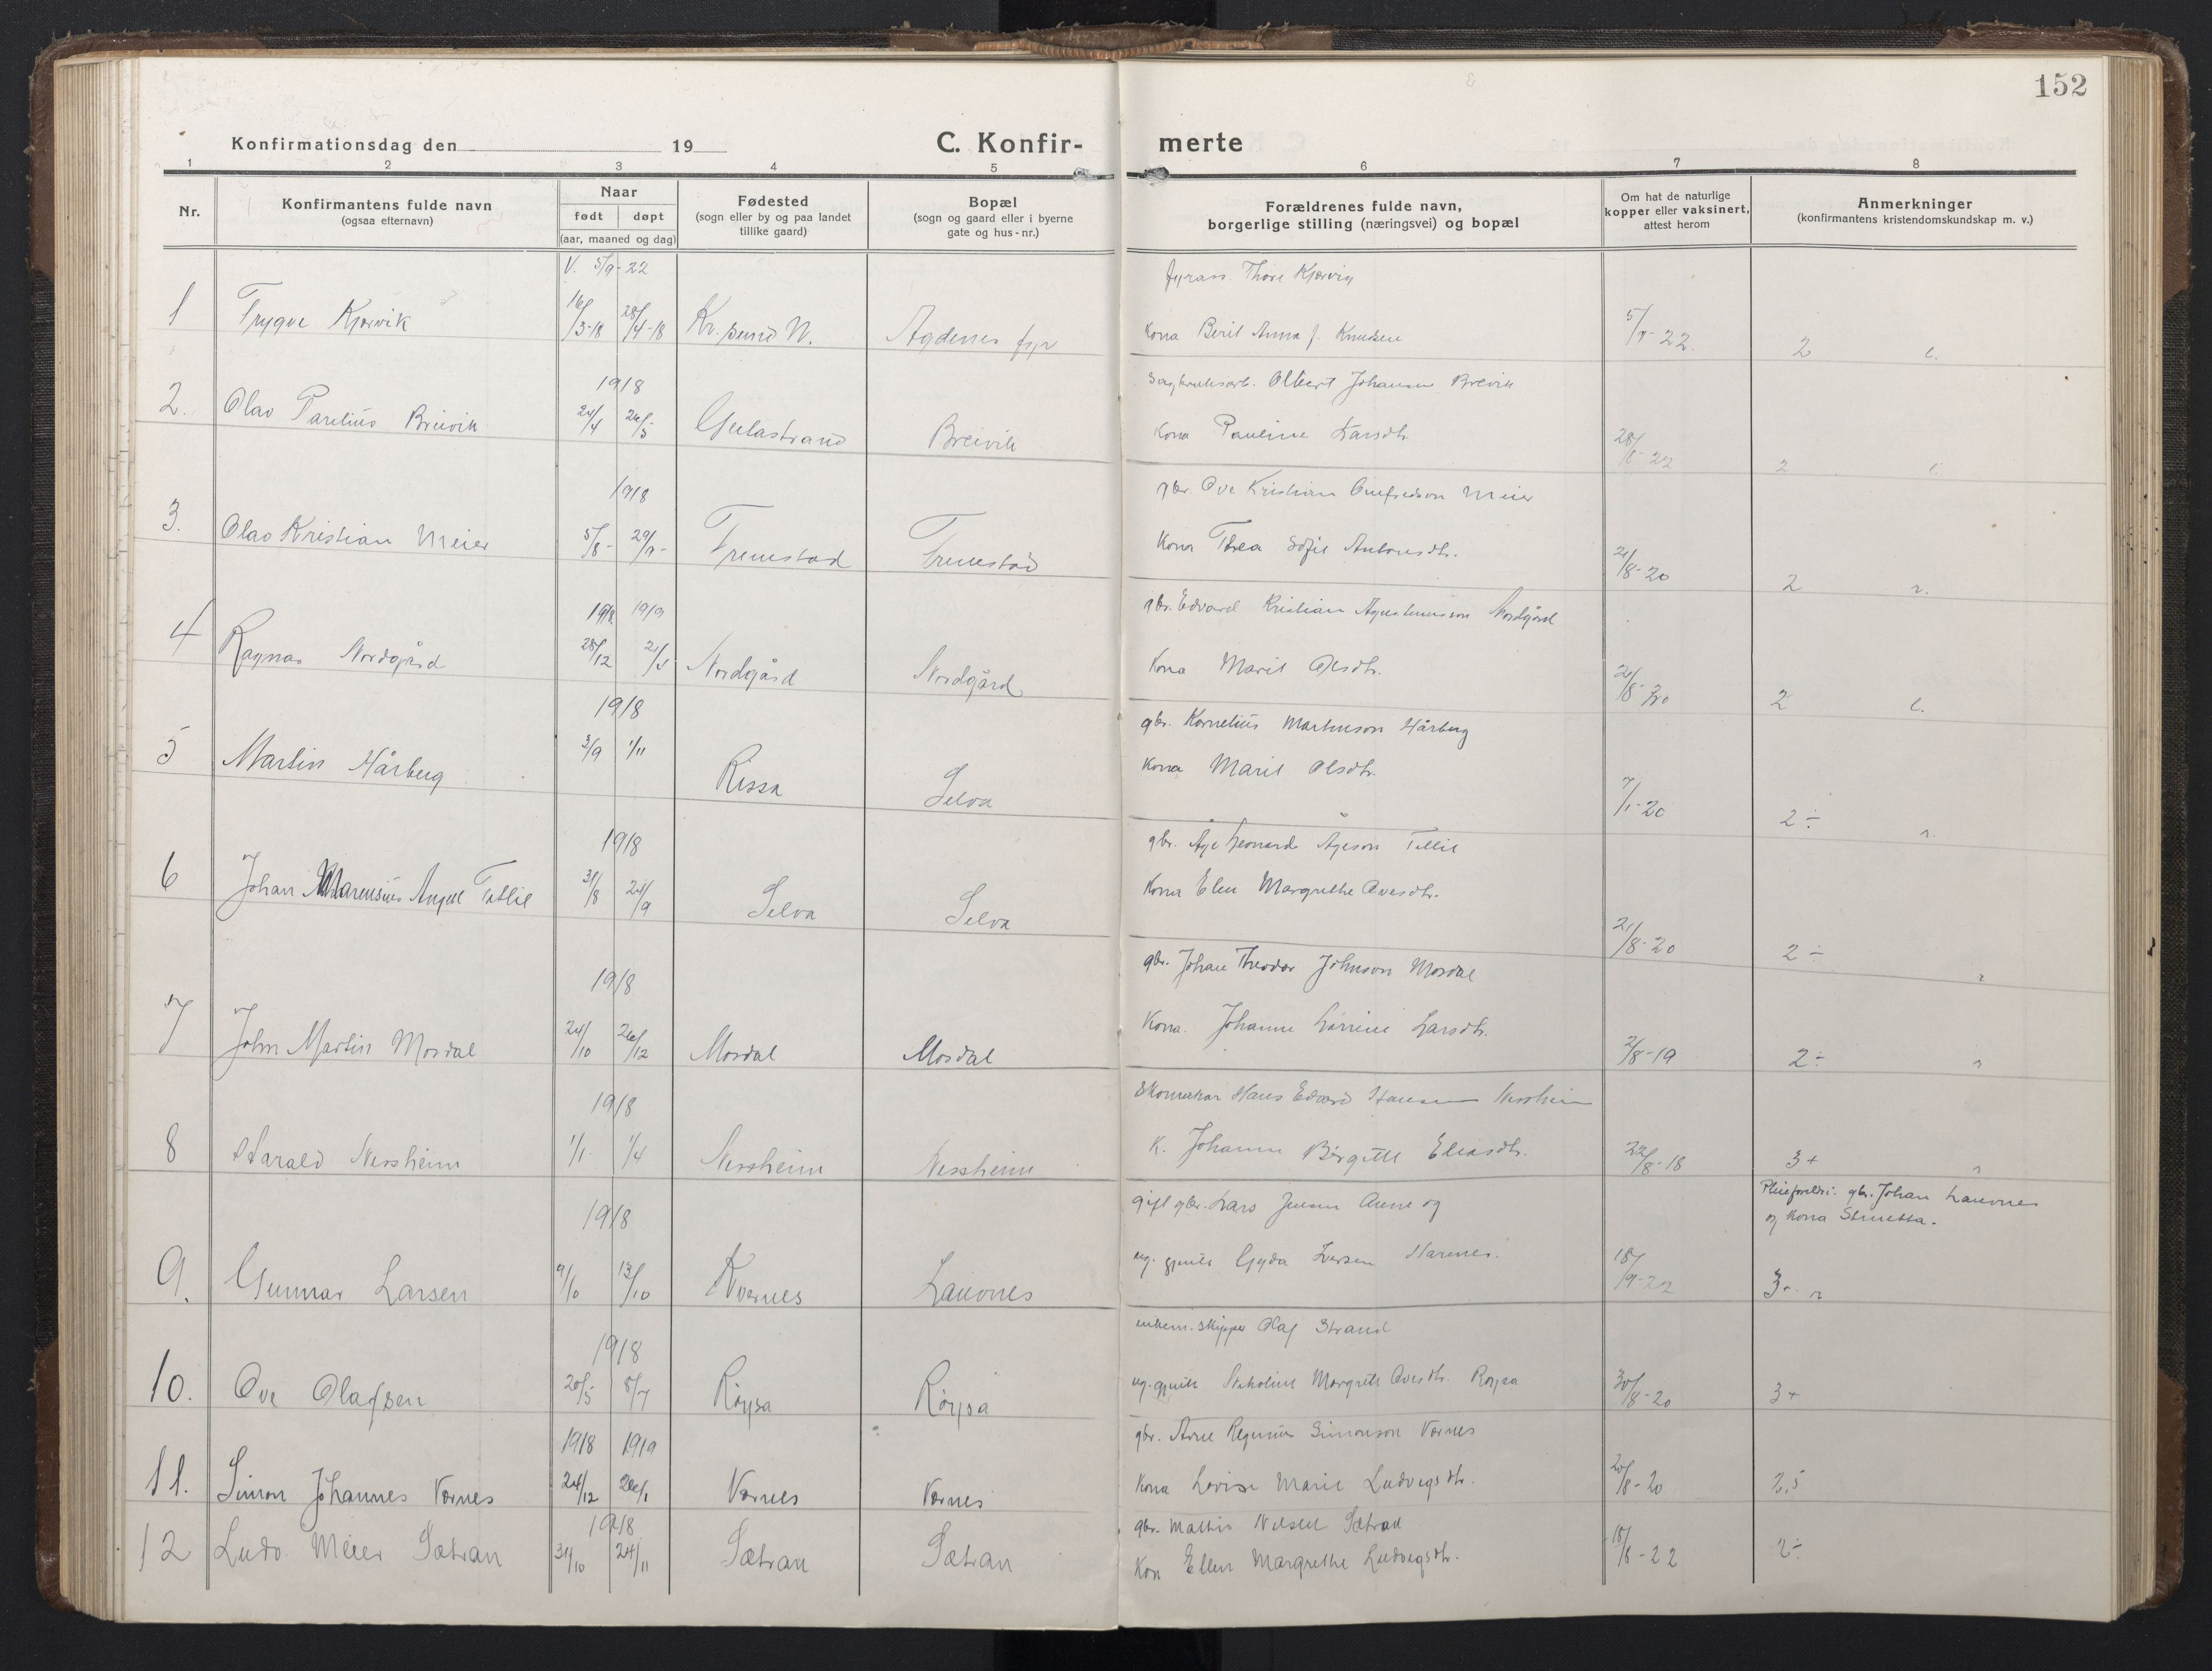 152
Konfirmationsdag den 19
C. Konfir-
merte
1 2 3 4 5 6 7 8
Nr.
Konfirmantens fulde navn
(ogsaa efternavn)
Naar
født døpt
(aar, maaned og dag)
Fødested
(sogn eller by og paa landet
tillike gaard)
Bopæl
(sogn og gaard eller i byerne
gate og hus-nr.)
Forældrenes fulde navn,
borgerlige stilling (næringsvei) og bopæl
Om hat de naturlige
kopper eller vaksinert,
attest herom
Anmerkninger
(konfirmantens kristendomskundskap m. v.)
V. 5/9-22 fyrass. Thore Kjørvik
1 Trygve Kjørvik 16/3-18 28/4-18 Kr.sund N. Agdenes fyr Kona Berit Anna f. Knudsen 5/9-22. 2 l.
1918 Sagbruksarb. Olbert Johansen Breivik
2. Olav Parelius Breivik 24/4 26/5 Geilastrand Breivik Kona Pauline Larsdtr. 2 l.
1918 gbr. Ove Kristian Meier
3. Olav Kristian Meier 5/8- 29/9- Trenestad Trenestad Kona Thea Sofie Antonsdtr. 21/8-20 2 r.
1918 1919 gbr. Edvard Kristian Nordgård
4 Ragnar Nordgård 28/12 Nordgård Nordgård Kona Marit Olsdtr. 21/8-20 2 l.
1918 gbr. Kornelius Martinson Hårberg
5 Martin Hårberg 3/9 1/11 Rissa Selva Kona Marit Olsdtr. 7/1-20 2÷ r.
1918 gbr. Åge Leonard Ågeson
6 Johan Marensius Angell 31/8 21/9 Selva Selva Kona Elen Margrethe Ovesdtr. 21/8-20 2÷ r
1918 gbr. Johan Theodor Johnson Mosdal
7 John Martin Mosdal 24/10 26/12 Mosdal Mosdal Kona. Johanne Larsdtr. 2/8-19 2÷ r
1918 Skomakar Hans Edvard Hansen Nessheim
8 Harald Nessheim 1/1 1/4 Nessheim Nessheim K. Johanne Birgitte Eliasdtr. 22/8-18 3+ r
1918 gift gbr. Lars Jensen Aune og Pleieforeldri. gbr. Johan Lauvnes
og Kona
9. Gunnar Larsen 13/10 Kvernes Lauvnes ug. gjente Gyda Iversen 18/9-22 3+. r
1918 unkem. skipper Olaf Strand
10. Ove Olafsen 20/5 8/7 Röysa Röysa ug. gjente Margrete Ovesdtr. Röysa 30/8-20 3+
1918 1919 gbr. Arne Simonson Værnes
11. Simon Johannes Værnes 24/12 26/1 Værnes Værnes Kona Lovise Marie Ludvigsdtr. 20/8-20 2,5
1918 gbr. Mathis Sætran
12 Ludv. Meier Sætran 31/10 24/11 Sætran Sætran Kon Ellen Margrethe Ludvigsdtr. 18/8-22 2÷